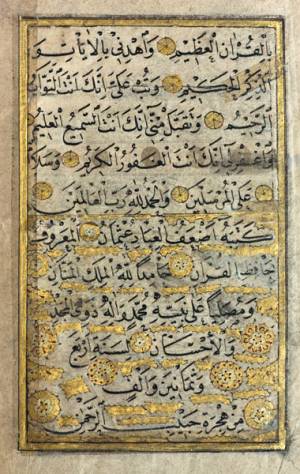 بالقرآن العظيم واهدني بالآيات و
الذكر الحكيم وتب علي إنك أنت التواب
الرحيم وتقبل مني إنك أنت السميع العليم
واغفر لي إنك أنت الغفور الكريم وسلام
على المرسلين والحمد لله رب العالمين
كتبه أضعف العباد عثمان المعروف
حافظ القرآن حامدا لله الملك المنان
ومصليا على نبيه محمد وآله ذوي المجد
والإحسان لسنة أربع
وثمانين وألف
من هجرة حبيب الرحمن